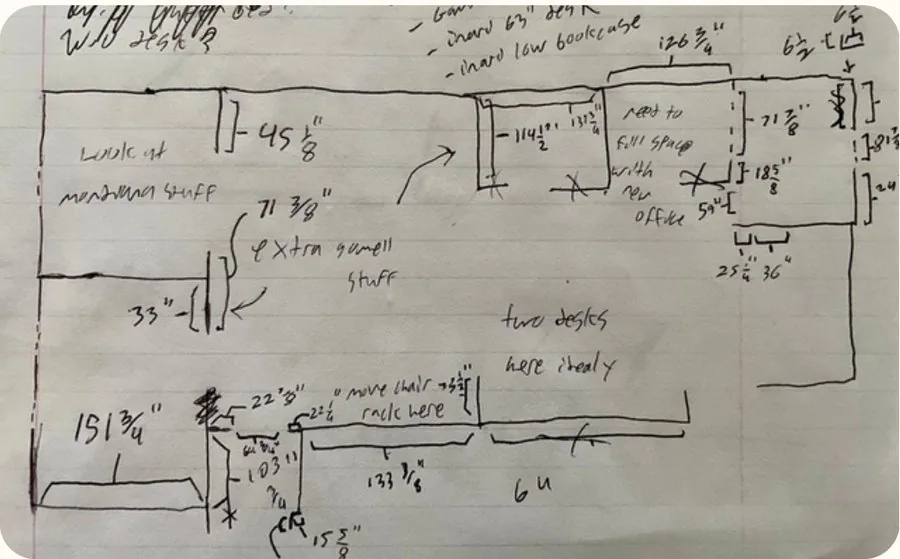 desk
- inard 63" desk
- inard low bookcase
126 3/4"
6 1/2
45 1/8"
Look at
montana stuff
114 1/2"
137 3/4
need to
full space
with
new
office
71 7/8"
18 5/8"
59"
24
25 1/4"
36"
71 3/8"
extra gamell
stuff
33"
two desks
here idealy
151 3/4"
22 7/8"
22 1/4"
move chair
rack here
103 3/4"
133 7/8"
64
15 5/8"